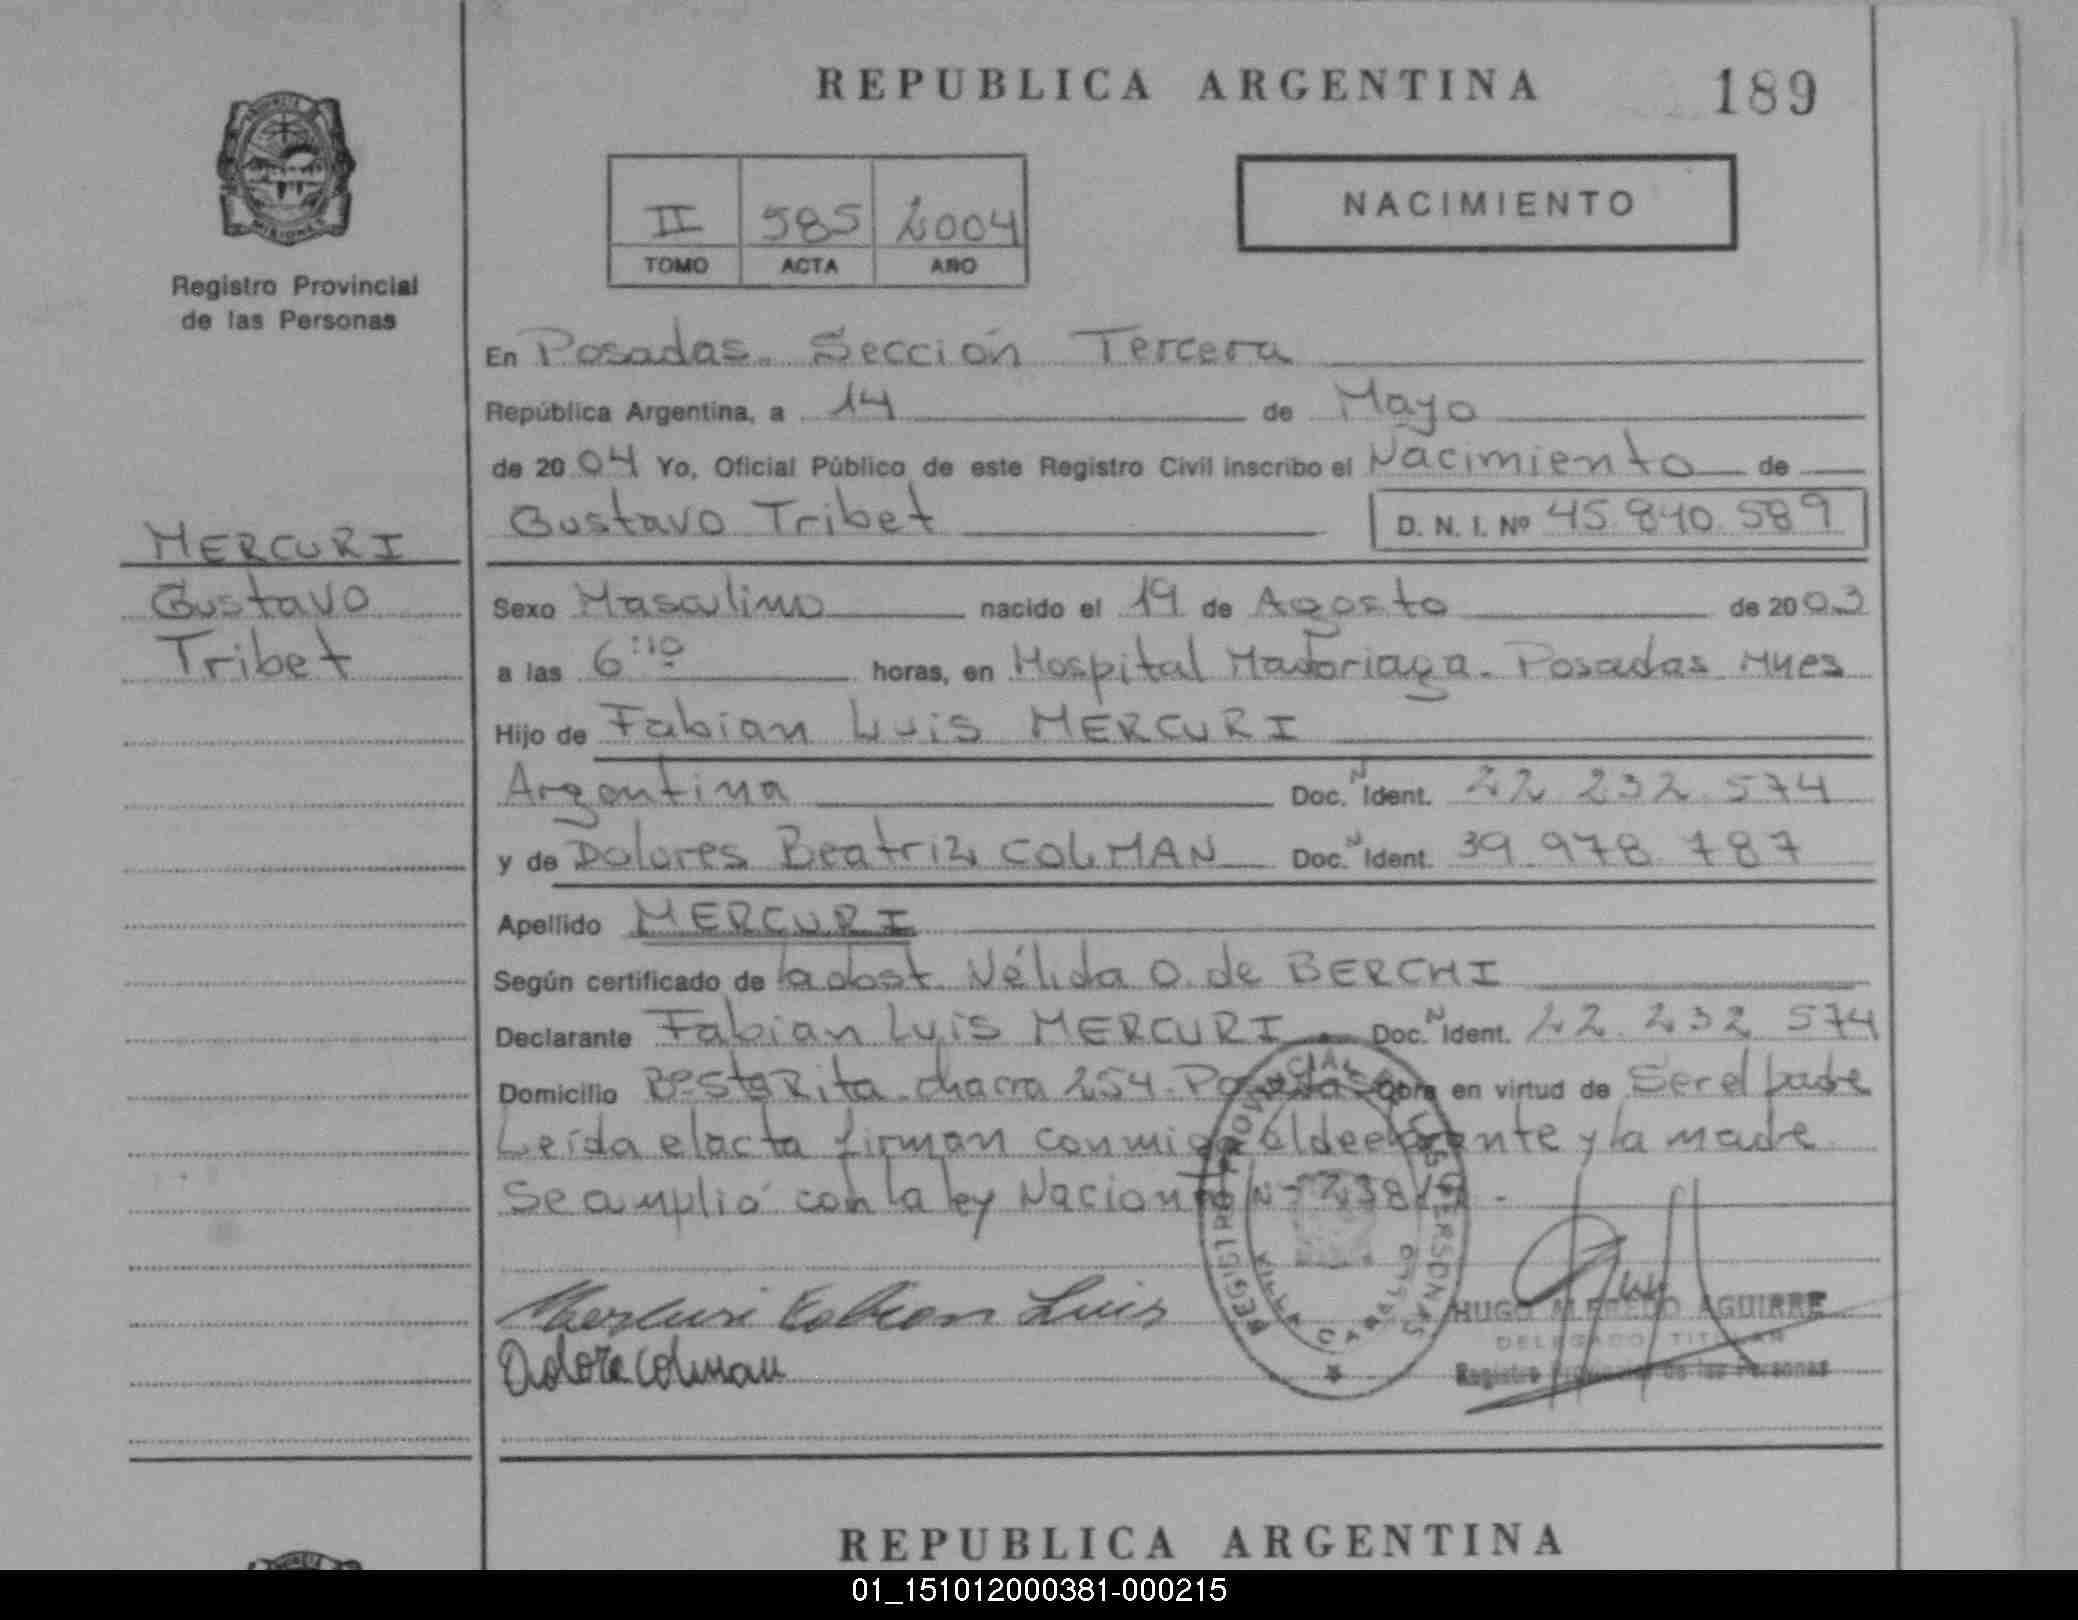 REPUBLICA ARGENTINA
189
II 585 2004
TOMO ACTA AÑO
NACIMIENTO
MISIONES
Registro Provincial
de las Personas
En Posadas. Sección Tercera
República Argentina, a 14 de Mayo
de 2004 Yo, Oficial Público de este Registro Civil inscribo el Nacimiento de
Gustavo Tribet D. N. I. Nº 45.840.589
MERCURI
Gustavo
Tribet
Sexo Masculino nacido el 19 de Agosto de 2003
a las 6:10 horas, en Hospital Madariaga. Posadas Mnes
Hijo de Fabian Luis MERCURI
Argentina Doc. N Ident. 22.232.574
y de Dolores Beatriz COLMAN Doc. N Ident. 39.978.787
Apellido MERCURI
Según certificado de la obst. Nélida O. de BERCHI
Declarante Fabian Luis MERCURI Doc. N Ident. 22.232.574
Domicilio Bº Sta Rita. chacra 254. Posadas Obra en virtud de Ser el padre
Leída el acta firman conmigo el declarante y la madre
Se amplió con la ley Nacional Nº
Mercuri Fabian Luis
Colman
REGISTRO PROVINCIAL DE LAS PERSONAS
HUGO ALFREDO AGUIRRE
DELEGADO TITULAR
Registro Provincial de las Personas
REPUBLICA ARGENTINA
01_151012000381-000215